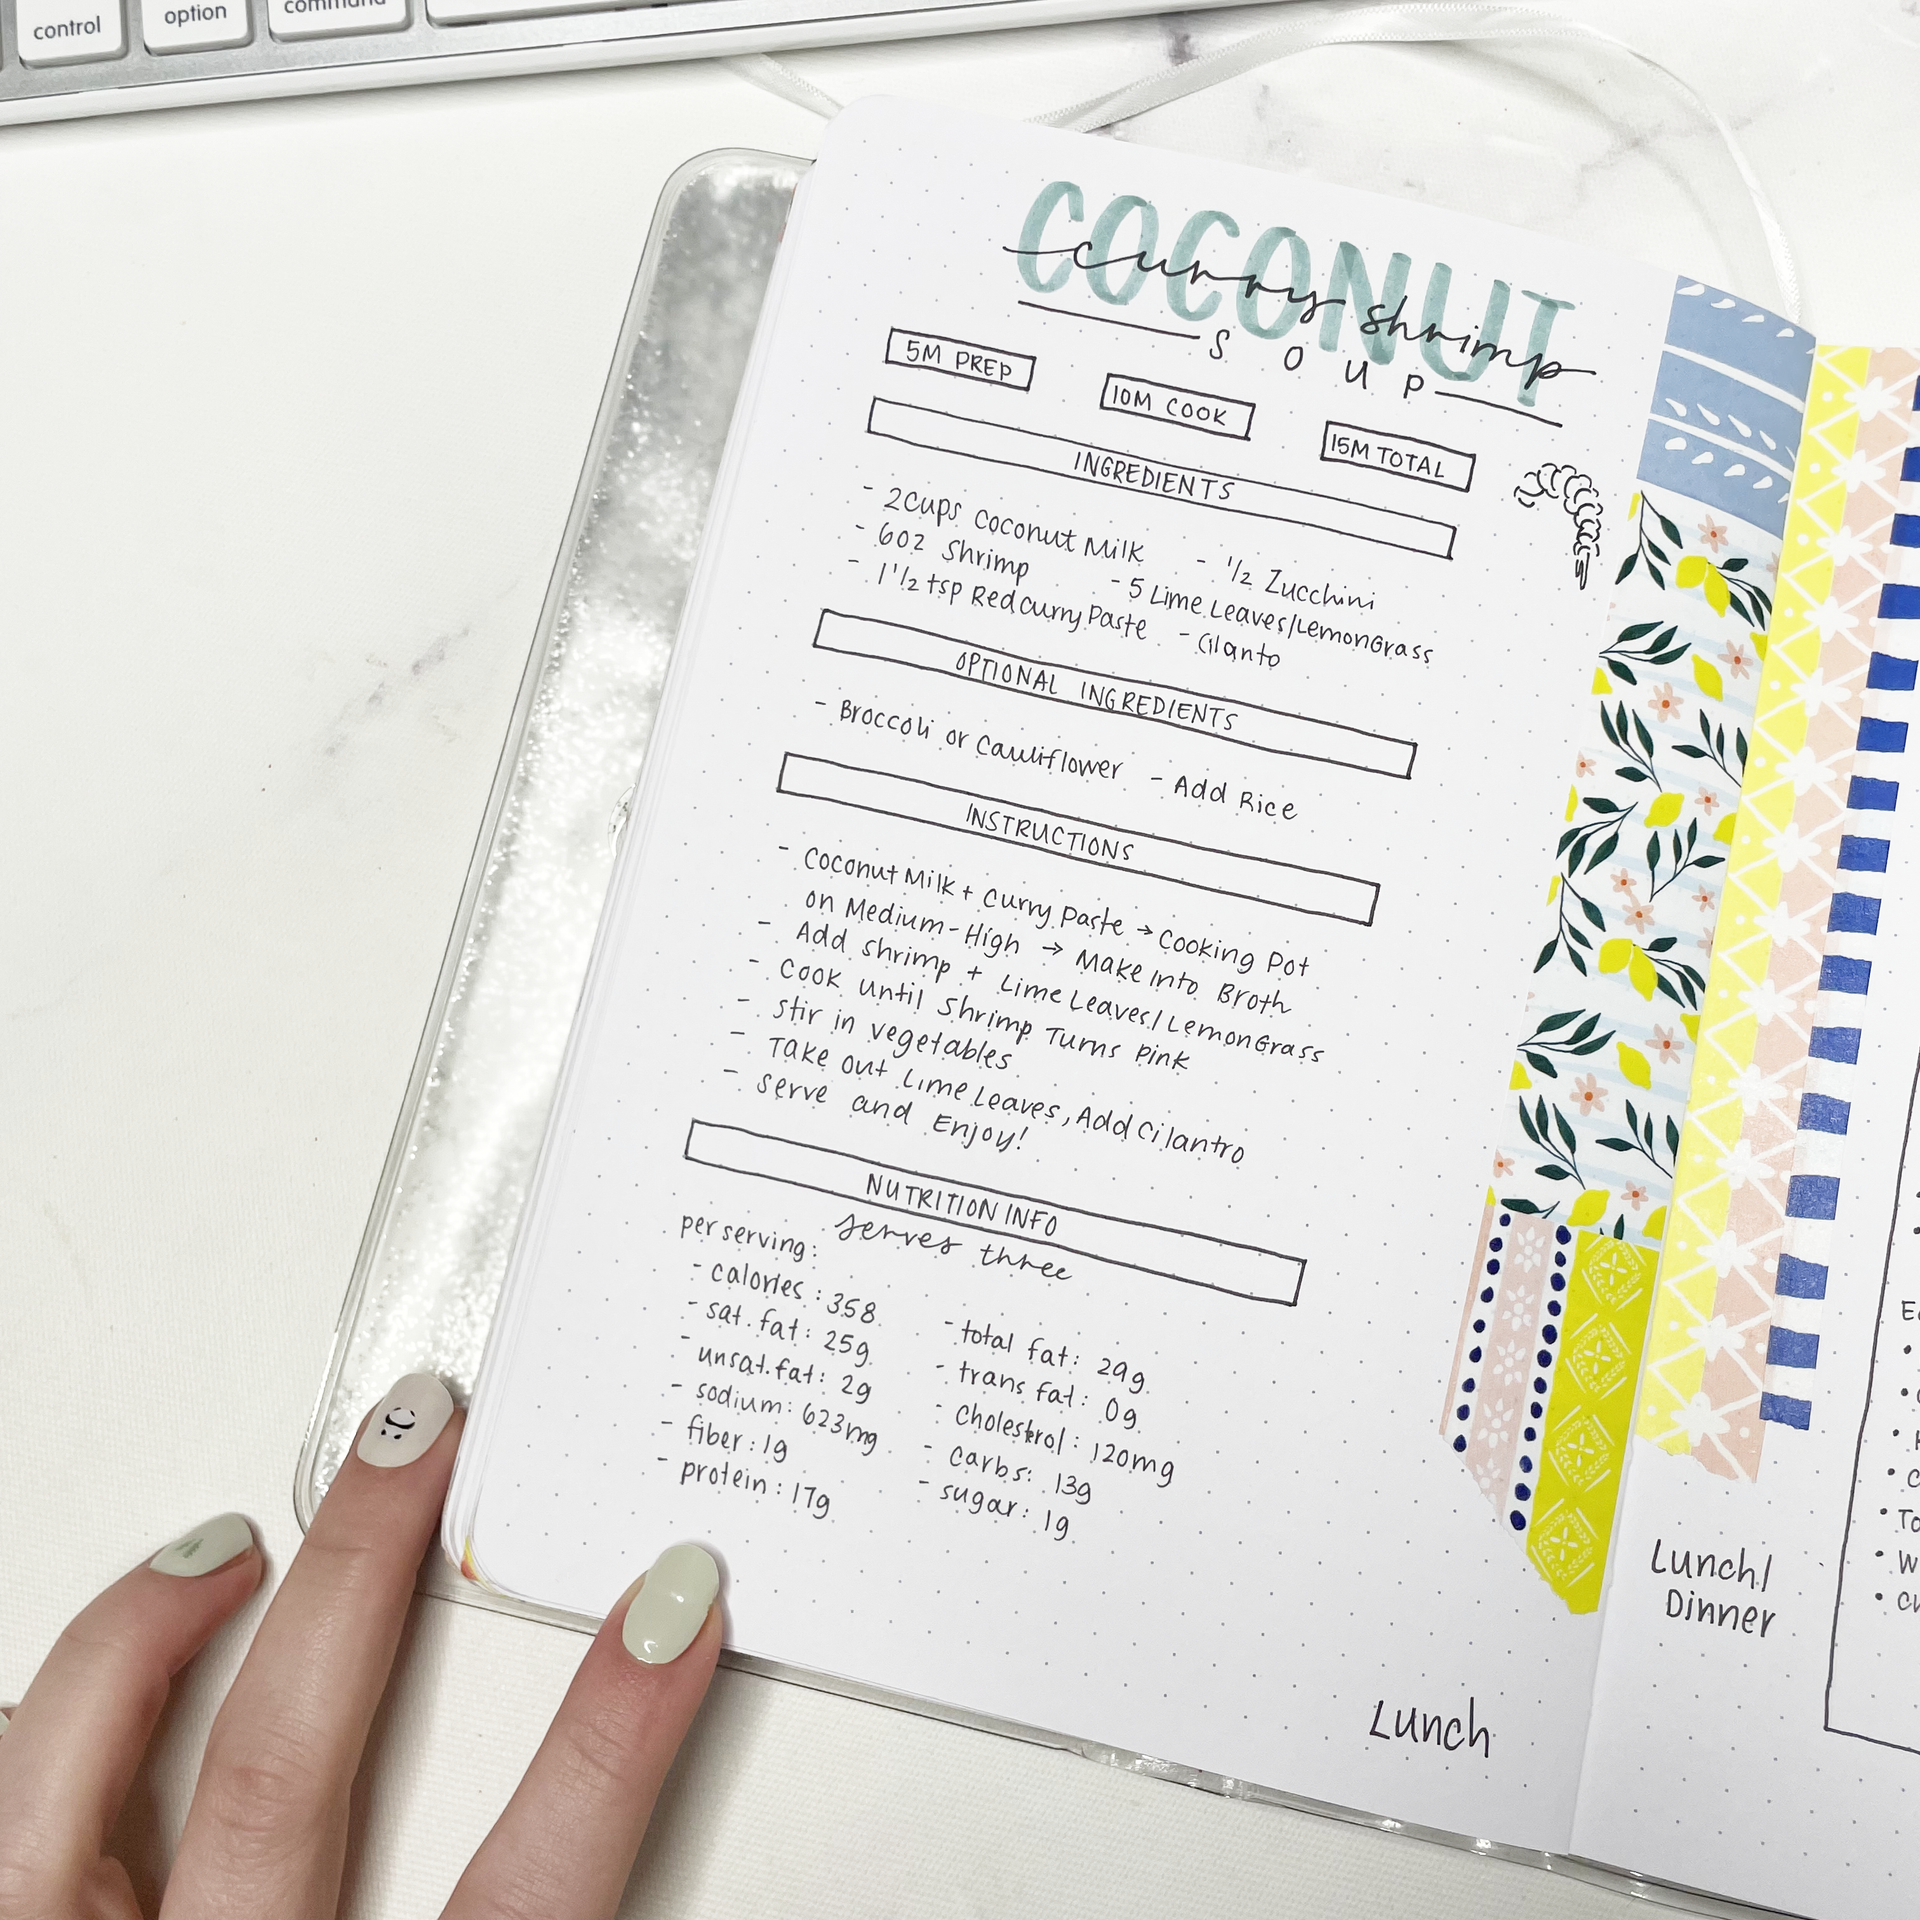 control
option
command
COCONUT
curry shrimp
SOUP
5M PREP
10M COOK
15M TOTAL
INGREDIENTS
- 2 Cups Coconut Milk - 1/2 Zucchini
- 6oz Shrimp - 5 Lime Leaves/LemonGrass
- 1 1/2 tsp Red Curry Paste - Cilanto
OPTIONAL INGREDIENTS
- Broccoli or Cauliflower - Add Rice
INSTRUCTIONS
- Coconut Milk + Curry Paste → Cooking Pot
on Medium-High → Make Into Broth
- Add Shrimp + Lime Leaves/LemonGrass
- Cook until Shrimp Turns Pink
- Stir in vegetables
- Take out Lime Leaves, Add Cilantro
- Serve and Enjoy!
NUTRITION INFO
per serving: serves three
- calories: 358
- sat. fat: 25g
- unsat. fat: 2g
- sodium: 623mg
- fiber: 1g
- protein: 17g
- total fat: 29g
- trans fat: 0g
- cholestrol: 120mg
- carbs: 13g
- sugar: 1g
Lunch
Lunch/
Dinner